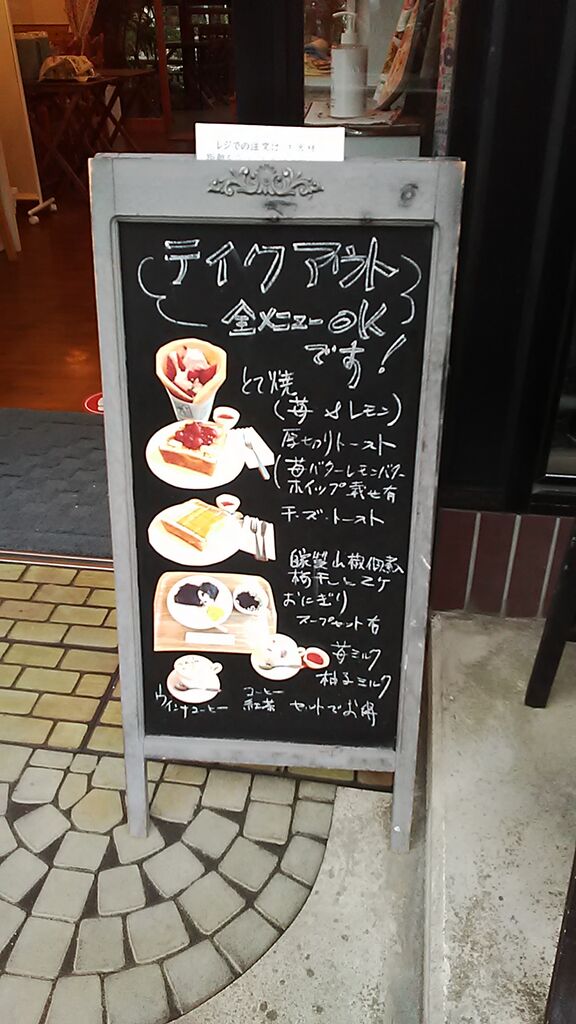 レジでの注文は
テイクアウト
全メニューOK
です!
とて焼
(苺&レモン)
厚切りトースト
(苺バターレモンバター
ホイップ載せ有
チーズ・トースト
自家製山椒佃煮
梅干しと2ケ
おにぎり
スープセット有
苺ミルク
柚子ミルク
ウインナコーヒー
コーヒー
紅茶 セットでお得